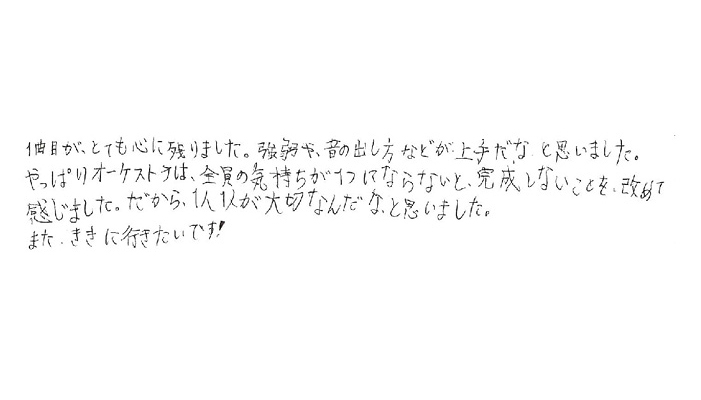 1曲目が、とても心に残りました。強弱や、音の出し方などが、上手だな、と思いました。
やっぱりオーケストラは、全員の気持ちが1つにならないと、完成しないことを、改めて
感じました。だから、1人1人が大切なんだな、と思いました。
また、ききに行きたいです!